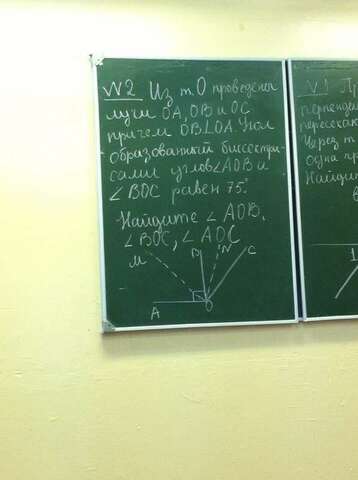 N2 Из т. О проведены
лучи ОА, ОВ и ОС
причем ОВ⊥ОА. Угол
образованный биссектри-
сами углов ∠АОВ и
∠ВОС равен 75°.
Найдите ∠АОВ,
∠ВОС, ∠АОС
M B N C
A O
V1
перпенди
пересека
Через т
одна пр
Найдит
1